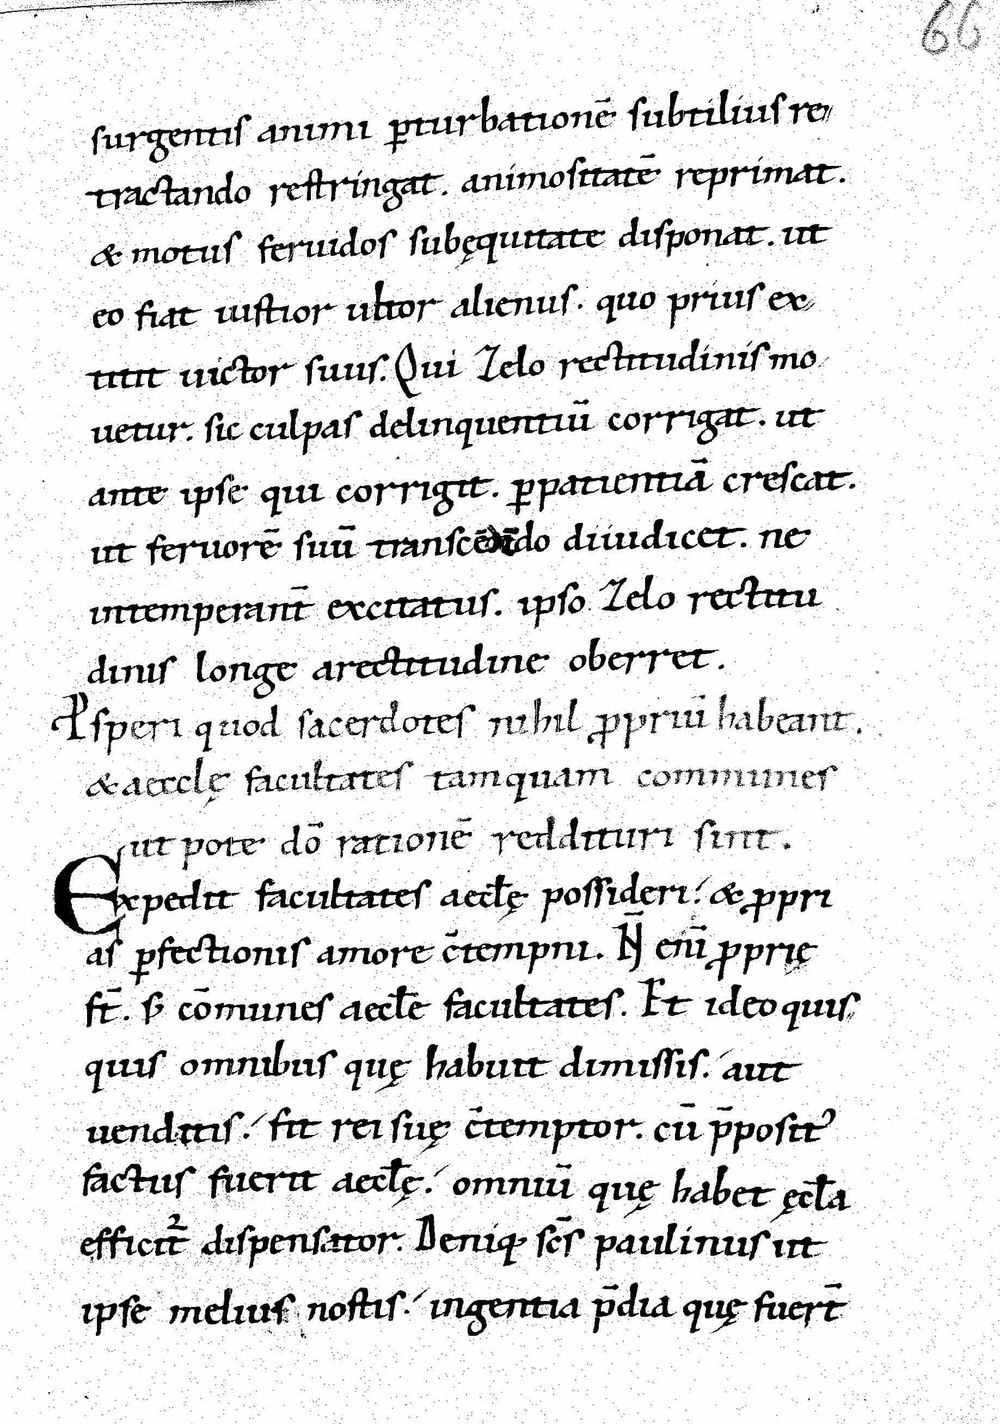 66
surgentis animi p̄turbationē subtilius re
tractando restringat. animositatē reprimat.
& motus feruidos subęquitate disponat. ut
eo fiat iustior ultor alienus. quo prius ex
titit uictor suus. Qui Zelo rectitudinis mo
uetur. sic culpas delinquentiū corrigat. ut
ante ipse qui corrigit. ꝑpatientiā crescat.
ut feruorē suū diiudicet. ne
intemperant̄ excitatus. ipso Zelo rectitu
dinis longe arectitudine oberret.
speri quod sacerdotes nihil ꝓpriū habeant.
& aecclę facultates tamquam communes
ut pote dō rationē reddituri sint.
Expedit facultates aecl̄ę possideri. & ꝓpri
as ꝑfectionis amore c̄tempni. N̄ enī ꝓprię
st̄. s; cōmunes aecl̄e facultates. Et ideo quis
quis omnibus quę habuit dimissis. aut
uenditis. fit rei suę c̄temptor. cū p̄posit᾽
factus fuerit aecl̄ę. omniū quę habet ęcl̄a
efficit᷑ dispensator. Deniq; sc̄s paulinus ut
ipse melius nostis. ingentia p̄dia quę fuer̄t